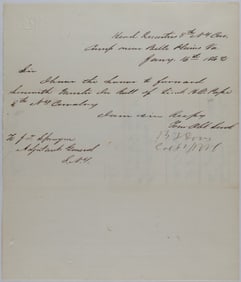 Head Quarters 8th N.Y. Cav.
Camp near Belle Plains Va
Jany. 16th 1863
Sir
I have the honor to forward
herewith Muster in Roll of Lieut
8th N.Y. Cavalry
I am sir Respy
Your Obt Servt
B. F. Davis
Col
Adjutant General
S.N.Y.